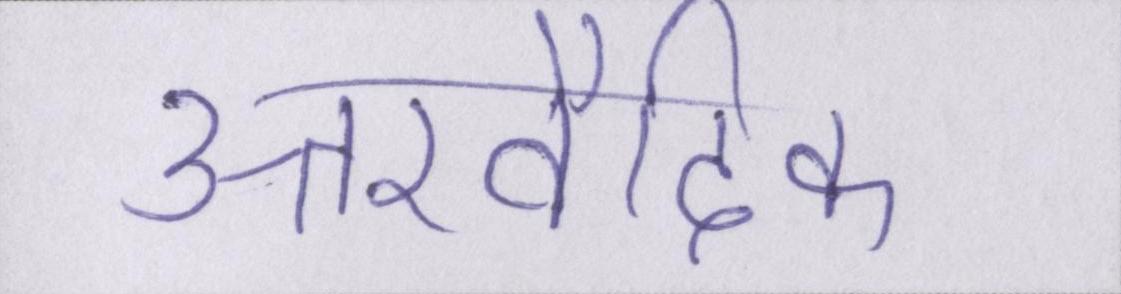 उत्तरवैदिक